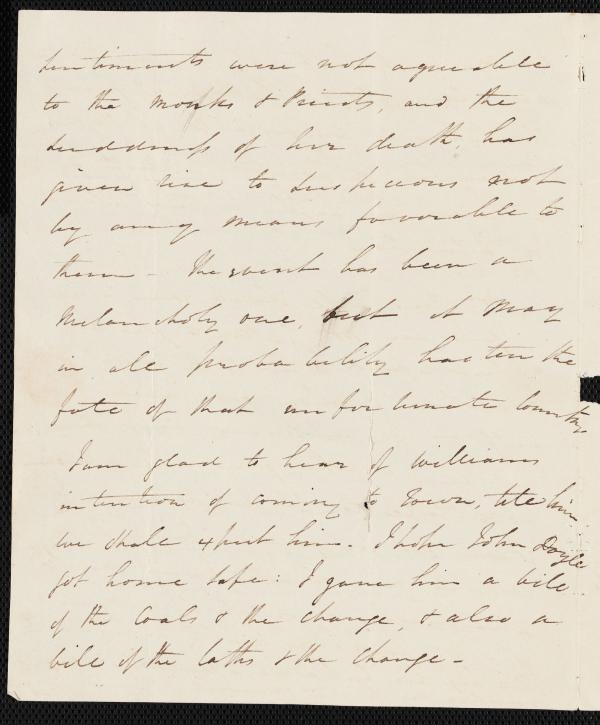 sentiments were not agreeable
to the monks & Priests, and the
suddenness of her death, has
given rise to suspicions not
by any means favorable to
them - The event has been a
Melancholy one, but it may
in all probability hasten the
fate of that unfortunate Country
I am glad to hear of Williams
intention of coming to Town, tell him
we shall expect him. I hope John Doyle
got home safe: I gave him a bill
of the Coals & the change, & also a
bill of the laths & the change -